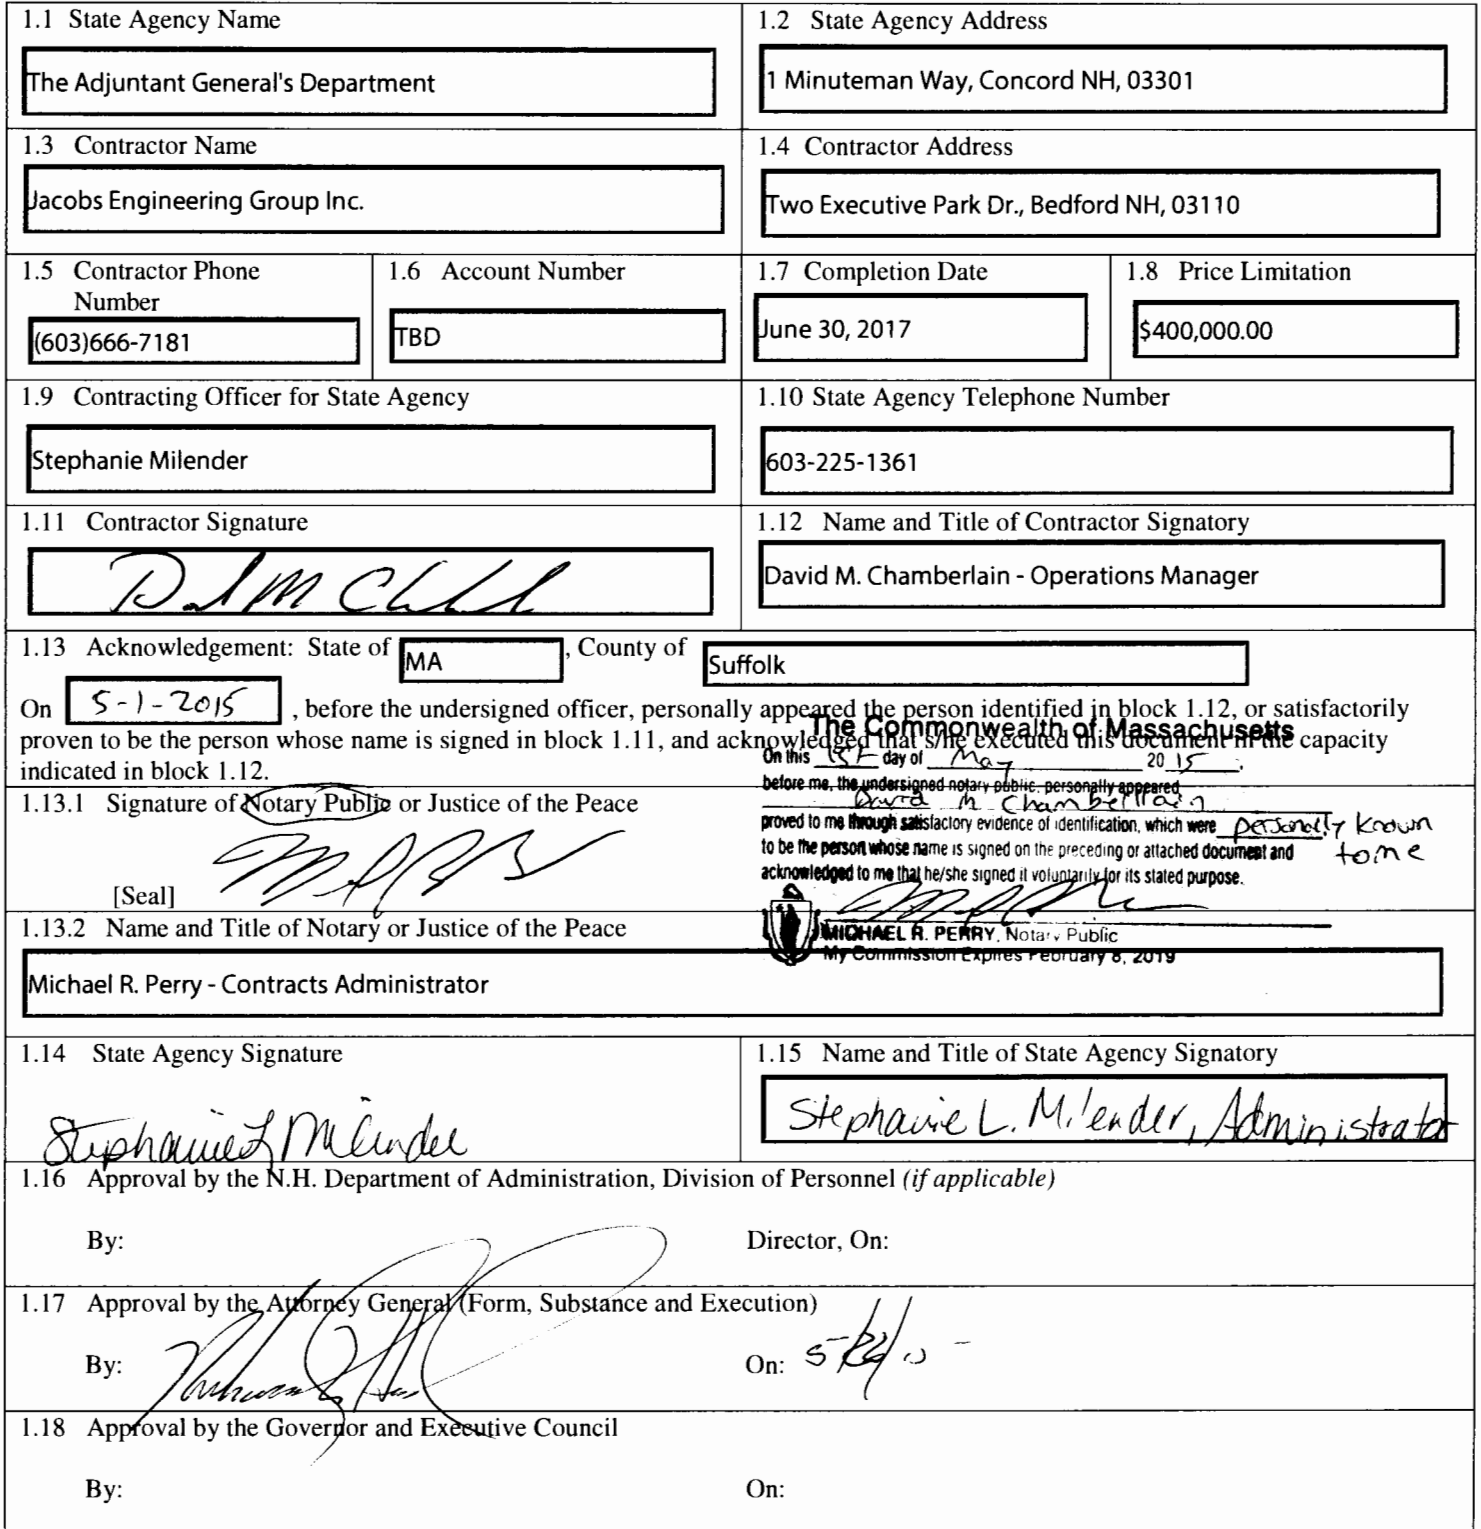 1.1 State Agency Name
The Adjuntant General's Department
1.2 State Agency Address
1 Minuteman Way, Concord NH, 03301
1.3 Contractor Name
Jacobs Engineering Group Inc.
1.4 Contractor Address
Two Executive Park Dr., Bedford NH, 03110
1.5 Contractor Phone
Number
(603)666-7181
1.6 Account Number
TBD
1.7 Completion Date
June 30, 2017
1.8 Price Limitation
$400,000.00
1.9 Contracting Officer for State Agency
Stephanie Milender
1.10 State Agency Telephone Number
603-225-1361
1.11 Contractor Signature
1.12 Name and Title of Contractor Signatory
David M. Chamberlain - Operations Manager
1.13 Acknowledgement: State of MA, County of Suffolk
On 5-1-2015, before the undersigned officer, personally appeared the person identified in block 1.12, or satisfactorily
proven to be the person whose name is signed in block 1.11, and acknowledged that s/he executed this document in the capacity
indicated in block 1.12.
The Commonwealth of Massachusetts
On this 1st day of May 2015,
before me, the undersigned notary public, personally appeared
David M Chamberlain
proved to me through satisfactory evidence of identification, which were personally known
to be the person whose name is signed on the preceding or attached document and to me
acknowledged to me that he/she signed it voluntarily for its stated purpose.
MICHAEL R. PERRY, Notary Public
My Commission Expires February 8, 2019
1.13.1 Signature of Notary Public or Justice of the Peace
[Seal]
1.13.2 Name and Title of Notary or Justice of the Peace
Michael R. Perry - Contracts Administrator
1.14 State Agency Signature
Stephanie L Milender
1.15 Name and Title of State Agency Signatory
Stephanie L. Milender, Administrator
1.16 Approval by the N.H. Department of Administration, Division of Personnel (if applicable)
By:
Director, On:
1.17 Approval by the Attorney General (Form, Substance and Execution)
By:
On:
1.18 Approval by the Governor and Executive Council
By:
On: